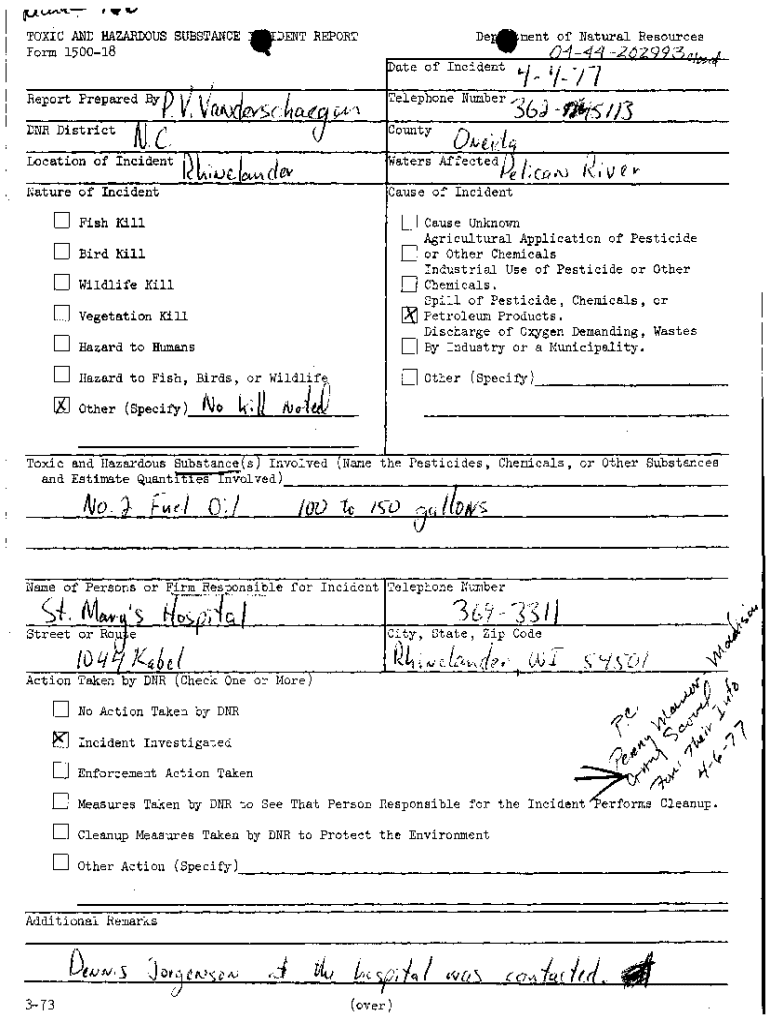 TOXIC AND HAZARDOUS SUBSTANCE IDENT REPORT Department of Natural Resources
Form 1500-18 04-44-202993 closed
Date of Incident 4-4-77
Report Prepared By P.V. Vanderschaegen Telephone Number 362-5113
DNR District N.C. County Oneida
Location of Incident Rhinelander Waters Affected Pelican River
Nature of Incident Cause of Incident
Fish Kill Cause Unknown
Agricultural Application of Pesticide
Bird Kill or Other Chemicals
Industrial Use of Pesticide or Other
Wildlife Kill Chemicals.
Spill of Pesticide, Chemicals, or
Vegetation Kill X Petroleum Products.
Discharge of Oxygen Demanding, Wastes
Hazard to Humans By Industry or a Municipality.
Hazard to Fish, Birds, or Wildlife Other (Specify)
X Other (Specify) No kill noted
Toxic and Hazardous Substance(s) Involved (Name the Pesticides, Chemicals, or Other Substances
and Estimate Quantities Involved)
No. 2 Fuel Oil 100 to 150 gallons
Name of Persons or Firm Responsible for Incident Telephone Number
St. Mary's Hospital 369-3311
Street or Route City, State, Zip Code
1044 Kabel Rhinelander, WI 54501
Action Taken by DNR (Check One or More)
No Action Taken by DNR
P.C.
X Incident Investigated
Madison
For Their Info
4-6-77
Enforcement Action Taken
Measures Taken by DNR to See That Person Responsible for the Incident Performs Cleanup.
Cleanup Measures Taken by DNR to Protect the Environment
Other Action (Specify)
Additional Remarks
Dennis Jorgenson at the hospital was contacted.
3-73 (over)